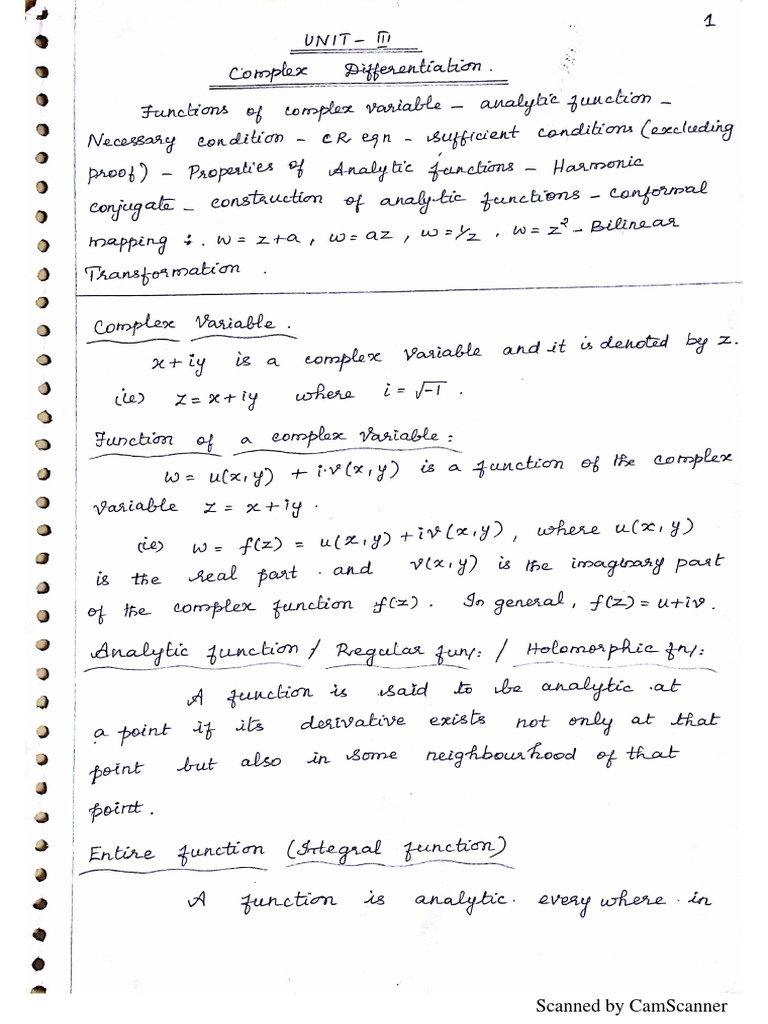 1
UNIT - III
Complex Differentiation.
Functions of complex variable - analytic function -
Necessary condition - CR eqn - sufficient conditions (excluding
proof) - Properties of Analytic functions - Harmonic
conjugate - construction of analytic functions - conformal
mapping : w = z+a, w = az, w = 1/z, w = z² - Bilinear
Transformation.
Complex Variable.
x+iy is a complex variable and it is denoted by z.
(ie) z = x+iy where i = √-1.
Function of a complex variable:
w = u(x,y) + i.v(x,y) is a function of the complex
variable z = x+iy.
(ie) w = f(z) = u(x,y) + iv(x,y), where u(x,y)
is the real part and v(x,y) is the imaginary part
of the complex function f(z). In general, f(z) = u+iv.
Analytic function / Regular fun/: / Holomorphic fn/:
A function is said to be analytic at
a point if its derivative exists not only at that
point but also in some neighbourhood of that
point.
Entire function (Integral function)
A function is analytic every where in
Scanned by CamScanner